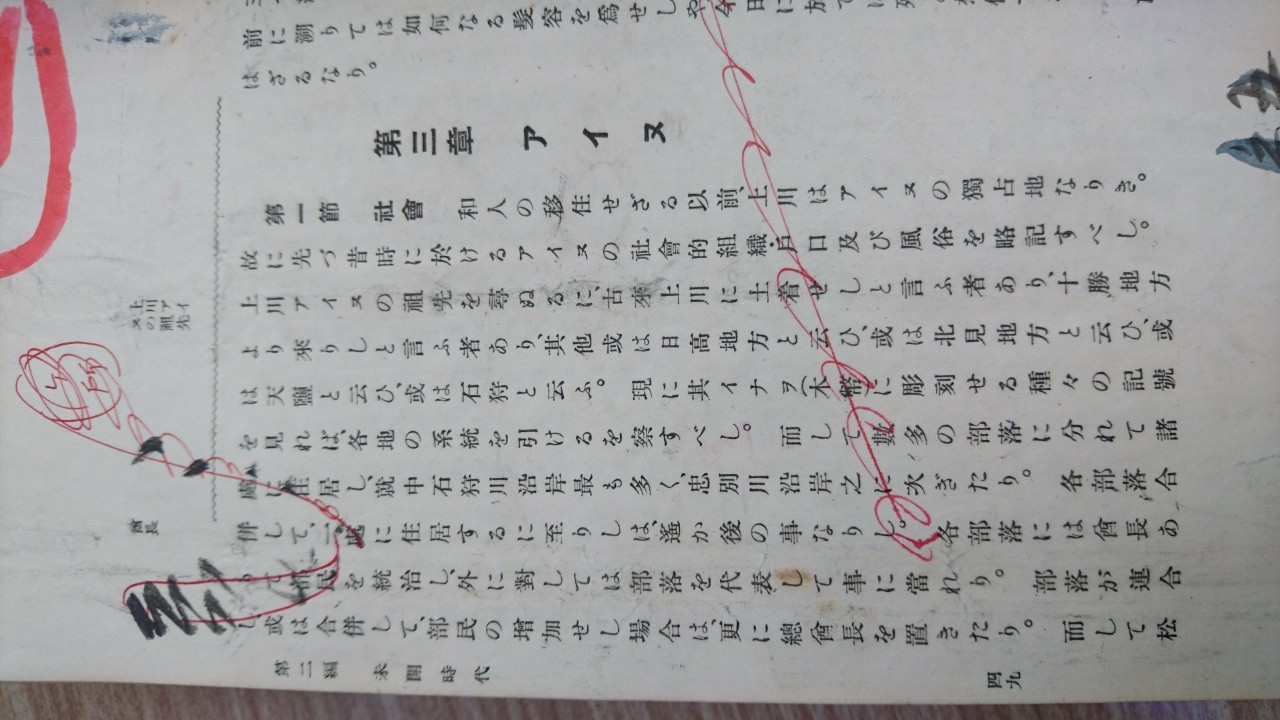 前に溯りては如何なる髮容を爲せしや今日に於ては
はざるなり。
第三章 アイヌ
第一節 社會 和人の移住せざる以前、上川はアイヌの獨占地なりき。
故に先づ昔時に於けるアイヌの社會的組織、戶口及び風俗を略記すべし。
上川アイヌの祖先を尋ぬるに、古來上川に土着せしと言ふ者あり、十勝地方
より來りしと言ふ者あり、其他或は日高地方と云ひ、或は北見地方と云ひ、或
は天鹽と云ひ、或は石狩と云ふ。現に其イナヲ(木幣)に彫刻せる種々の記號
を見れば、各地の系統を引けるを察すべし。而して數多の部落に分れて諸
處に住居し、就中石狩川沿岸最も多く、忠別川沿岸之に次ぎたり。各部落合
併して、一處に住居するに至りしは、遙か後の事なりし。各部落には酋長あ
りて部民を統治し、外に對しては部落を代表して事に當れり。部落が連合
し、或は合併して、部民の增加せし場合は、更に總酋長を置きたり。而して松
上川アイ
ヌの祖先
酋長
第二編 未開時代
四九